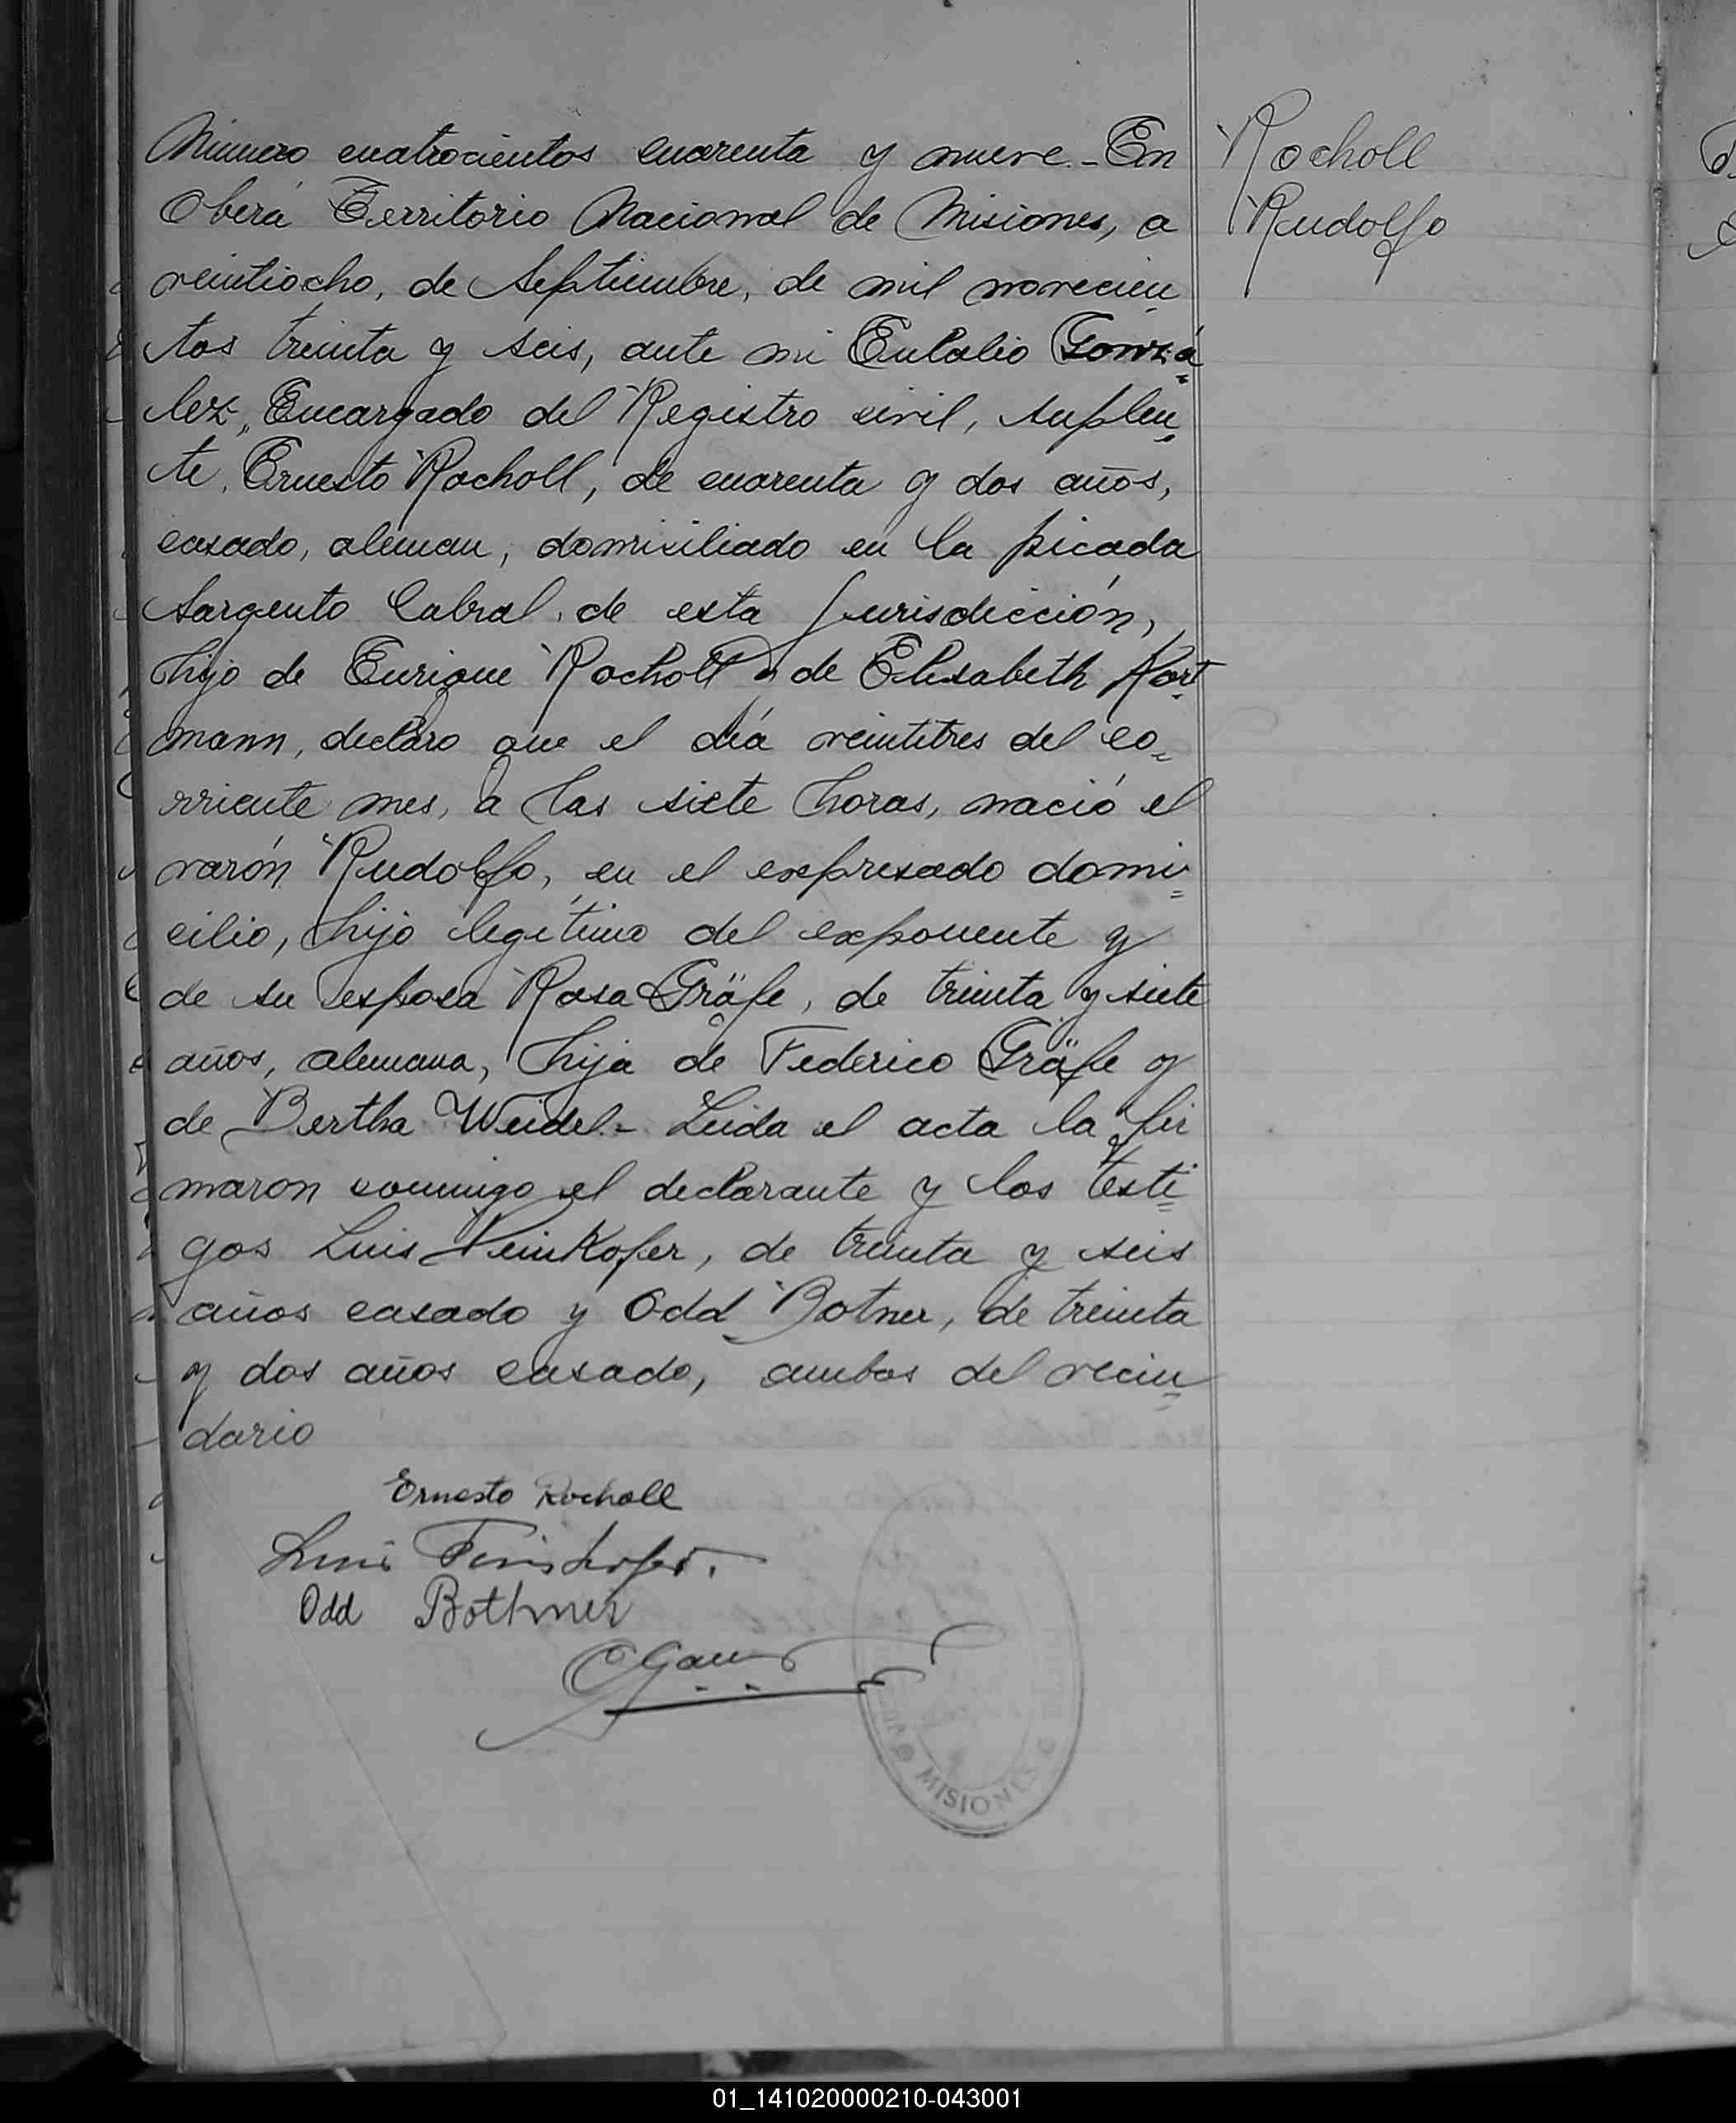 Número cuatrocientos cuarenta y nueve.- En
Oberá Territorio Nacional de Misiones, a
veintiocho, de Septiembre, de mil novecien
tos treinta y seis, ante mi Eulalio Gonzá=
lez, Encargado del Registro civil, suplen=
te, Ernesto Rocholl, de cuarenta y dos años,
casado, aleman, domiciliado en la picada
Sargento Cabral, de esta Jurisdicción,
hijo de Enrique Rocholl y de Elisabeth Kort=
mann, declaro que el día veintitres del co=
rriente mes, a las siete horas, nació el
varón Rudolfo, en el expresado domi=
cilio, hijo legítimo del exponente y
de su esposa Rosa Gräfe, de treinta y siete
años, alemana, hija de Federico Gräfe y
de Bertha Weidel.- Leida el acta la fir
maron conmigo el declarante y los testi=
gos Luis Feinkofer, de treinta y seis
años casado y Odd Botner, de treinta
y dos años casado, ambos del vecin=
dario
Ernesto Rocholl
Luis
Odd Bothner
MISIONES
Rocholl
Rudolfo
01_141020000210-043001